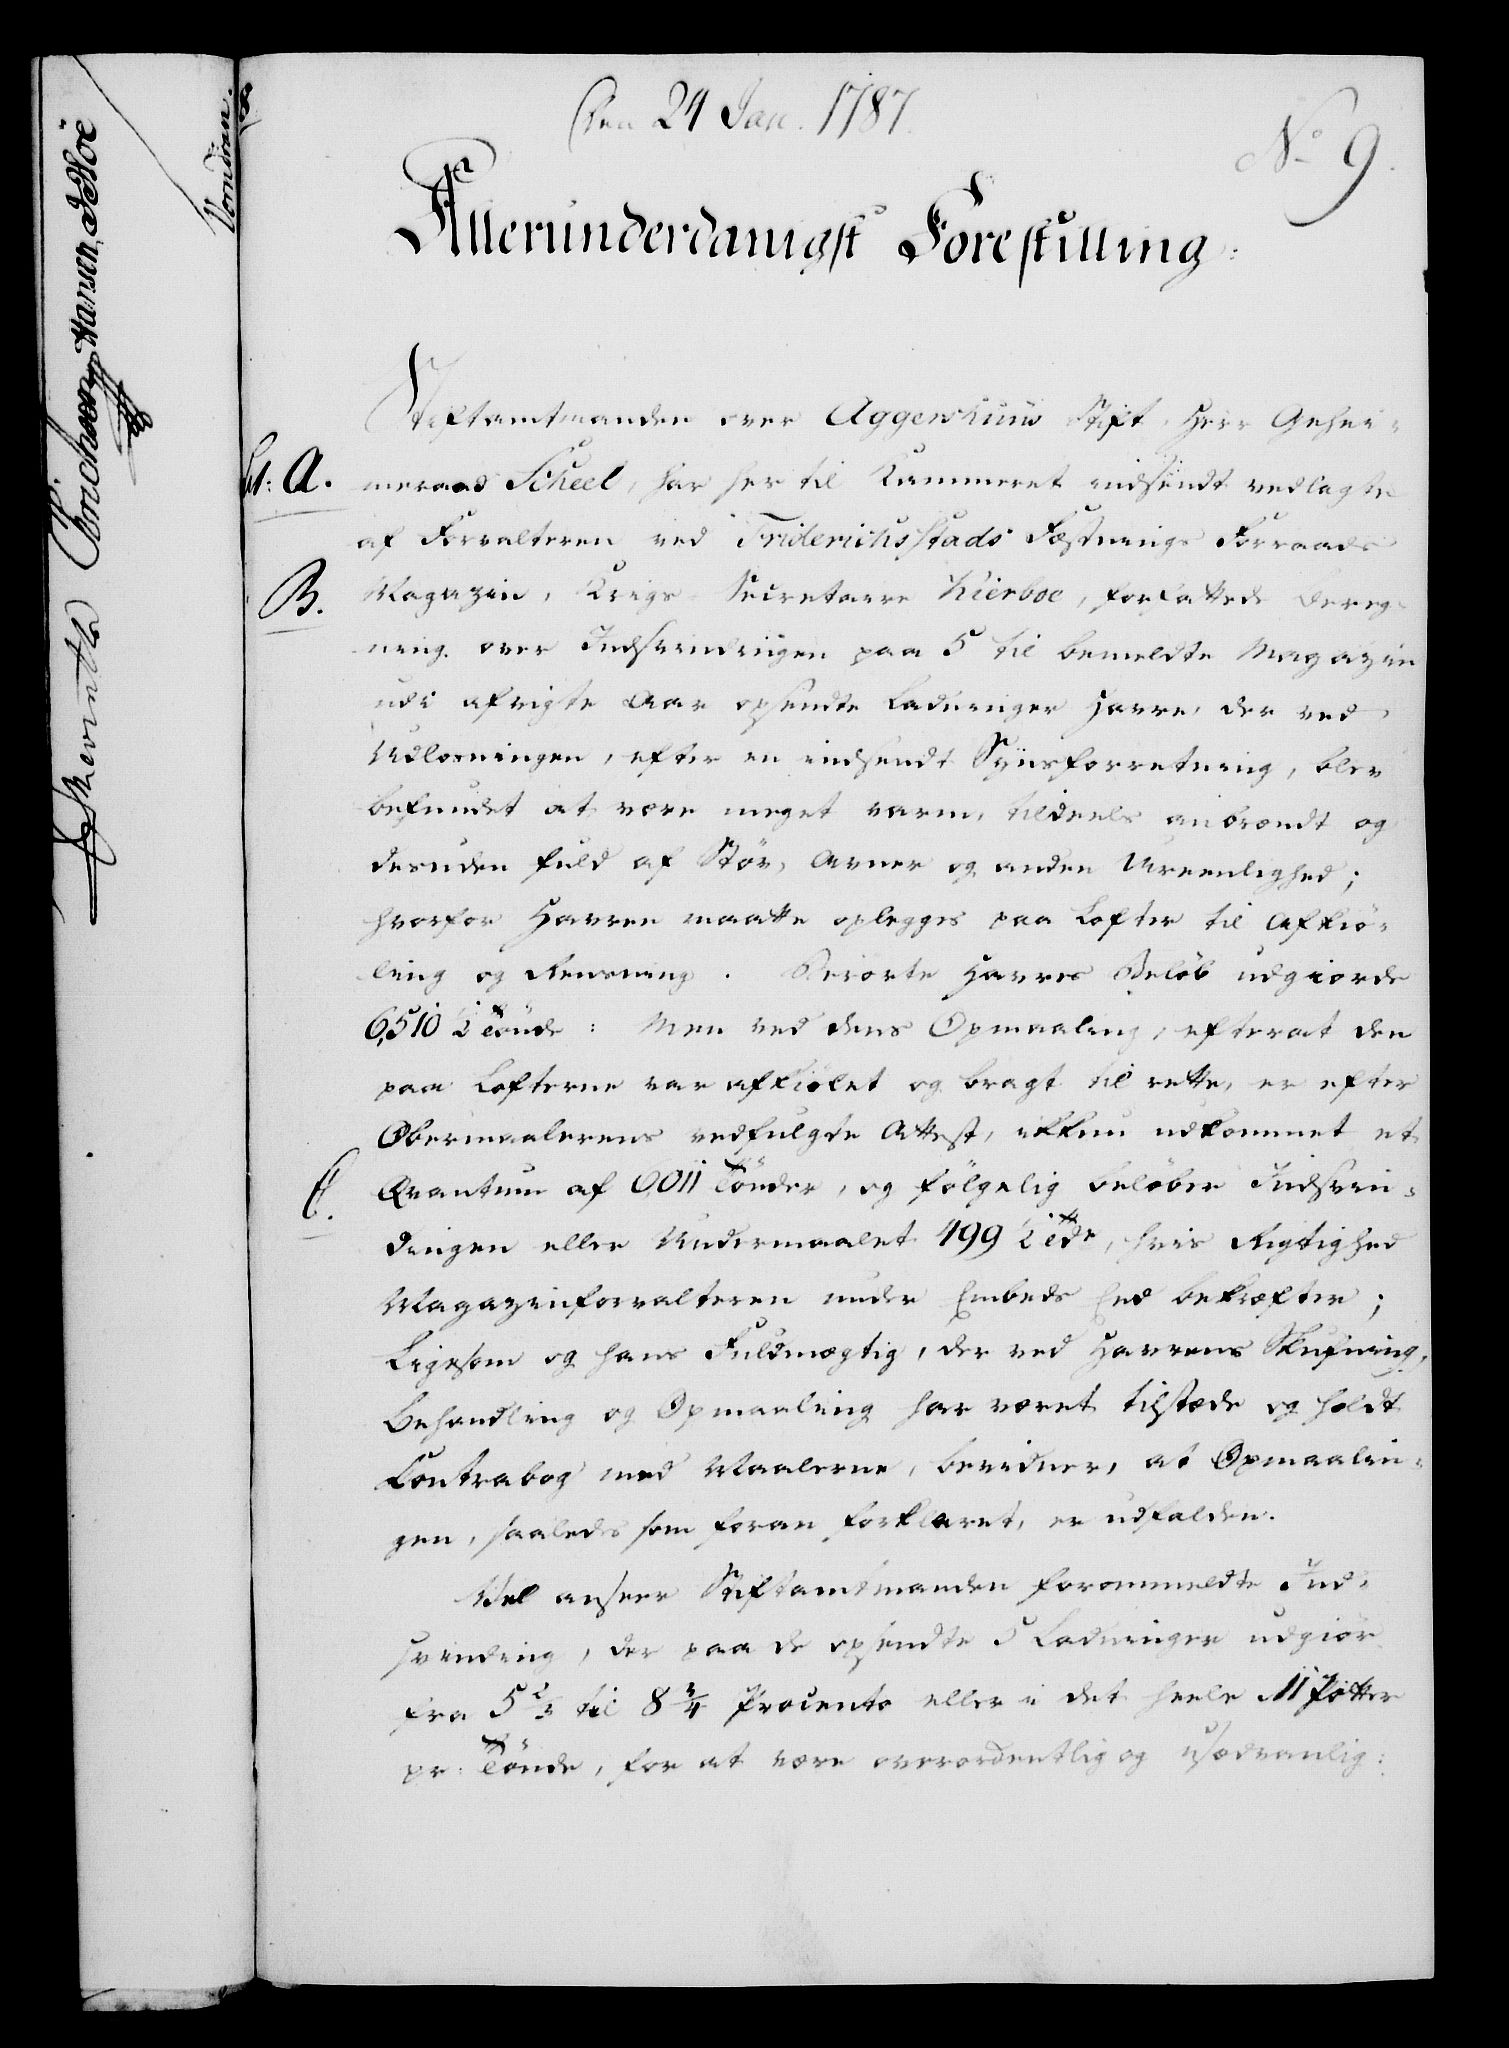 Den 24 Jan. 1787.
No 9.
Allerunderdanigst Forestilling:
Stiftamtmanden over Aggershuus Stift, Herr Gehei-
Lit: A. meraad Scheel, har her til Kammeret indsendt vedlagte
af Forvalteren ved Friderichsstads Fæstnings Forraads
B. Magazin, Krigs-Secretaire Kierboe, forfattede Bereg-
ning over Indsvindingen paa 5 til bemeldte Magazin
udi afvigte Aar opsendte Ladninger Havre, der ved
Udlosningen, efter en indsendt Synsforretning, blev
befundet at være meget varm, tildeels anbrændt og
desuden fuld af Støv, Avner og anden Ureenlighed;
hvorfor Havren maatte oplegges paa Lofter til Afkiø-
ling og Rensning. Berørte Havres Beløb udgiorde
6,510 1/2 Tönde: Men ved dens Opmaaling, efterat den
paa Lofterne var afkiølet og bragt til rette, er efter
Obermaalerens vedfulgde Attest, ikkun udkommet et
C. Qvantum af 6,011 Tönder, og følgelig beløber Indsvin-
dingen eller Undermaalet 499 1/2 Tdr, hvis Rigtighed
Magazinforvalteren under Embeds Eed bekræfter;
Ligesom og hans Fuldmægtig, der ved Havrens Skufning,
Behandling og Opmaaling har været tilstæde og holdt
Contrabog med Maalerne, bevidner, at Opmaalin-
gen, saaledes som foran forklaret, er udfalden.
Vel anseer Stiftamtmanden forommeldte Ind-
svinding, der paa de opsendte 5 Ladninger udgiør
fra 5 2/3 til 8 3/4 Procento eller i det heele 11 Potter
pr: Tönde, for at være overordentlig og usædvanlig:
Hansen, dHoie